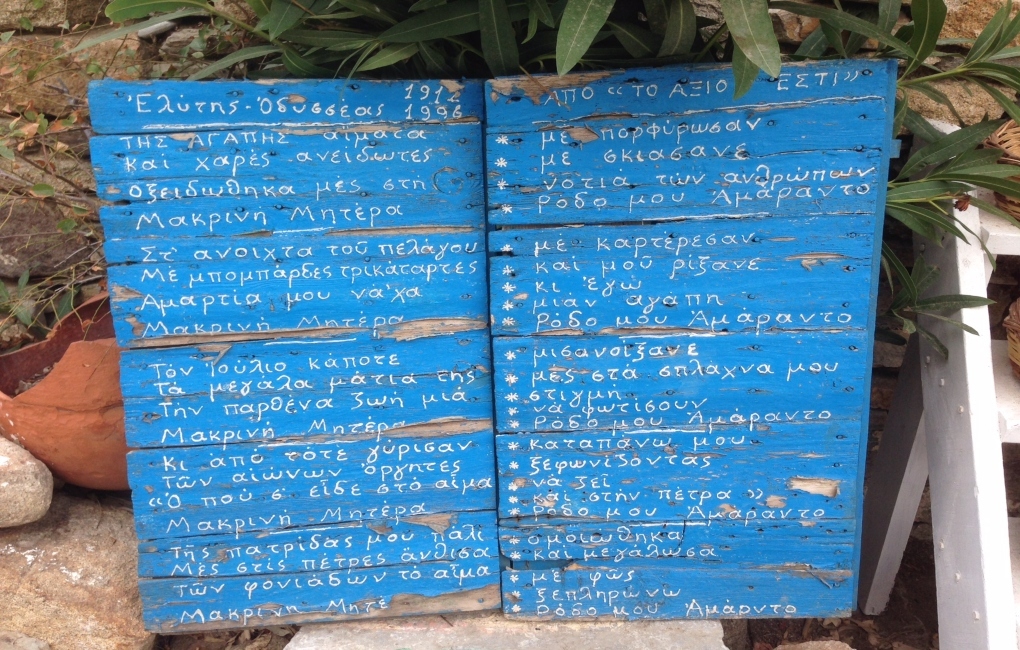 Ἐλύτης - Ὀδυσσέας 1912
1996
ΤΗΣ ΑΓΑΠΗΣ αἵματα
και χαρές ανείδωτες
Οξειδώθηκα μές στή
Μακρινή Μητέρα
Στ' ανοιχτα τοῦ πελάγου
Μέ μπομπάρδες τρικάταρτες
Αμαρτία μου νά'χα
Μακρινή Μητέρα
Τόν Ἰούλιο κάποτε
Τά μεγάλα μάτια της
Τήν παρθένα ζωή μιά
Μακρινή Μητέρα
Κι από τότε γύρισαν
Τῶν αἰώνων ὀργητες
«Ὁ πού σ' εἶδε στό αἷμα
Μακρινή Μητέρα
Τῆς πατρίδας μου πάλι
Μές στίς πέτρες ἄνθισα
Τῶν φονιάδων τό αἷμα
Μακρινή Μητέ
ΑΠΟ «ΤΟ ΑΞΙΟ ΕΣΤΙ»
* μέ πορφύρωσαν
* με σκιασανε
* νοτιά τῶν ανθρώπων
* Ρόδο μου Ἀμάραντο
* με καρτέρεσαν
* καί μοῦ ρίξανε
* κι ἐγώ
* μιάν αγαπη
* Ρόδο μου Ἀμάραντο
* μισανοίξανε
* μές στά σπλαχνα μου
* στιγμή
* νά φωτίσουν
* Ρόδο μου Ἀμάραντο
* καταπάνω μου
* ξεφωνίζοντας
* νά ζεί
* καί στήν πετρα »
* Ρόδο μου Ἀμάραντο
* ὁμοιώθηκα
* και μεγάλωσα
* μέ φῶς
* ξεπληρώνω
* Ρόδο μου Ἀμάρντο